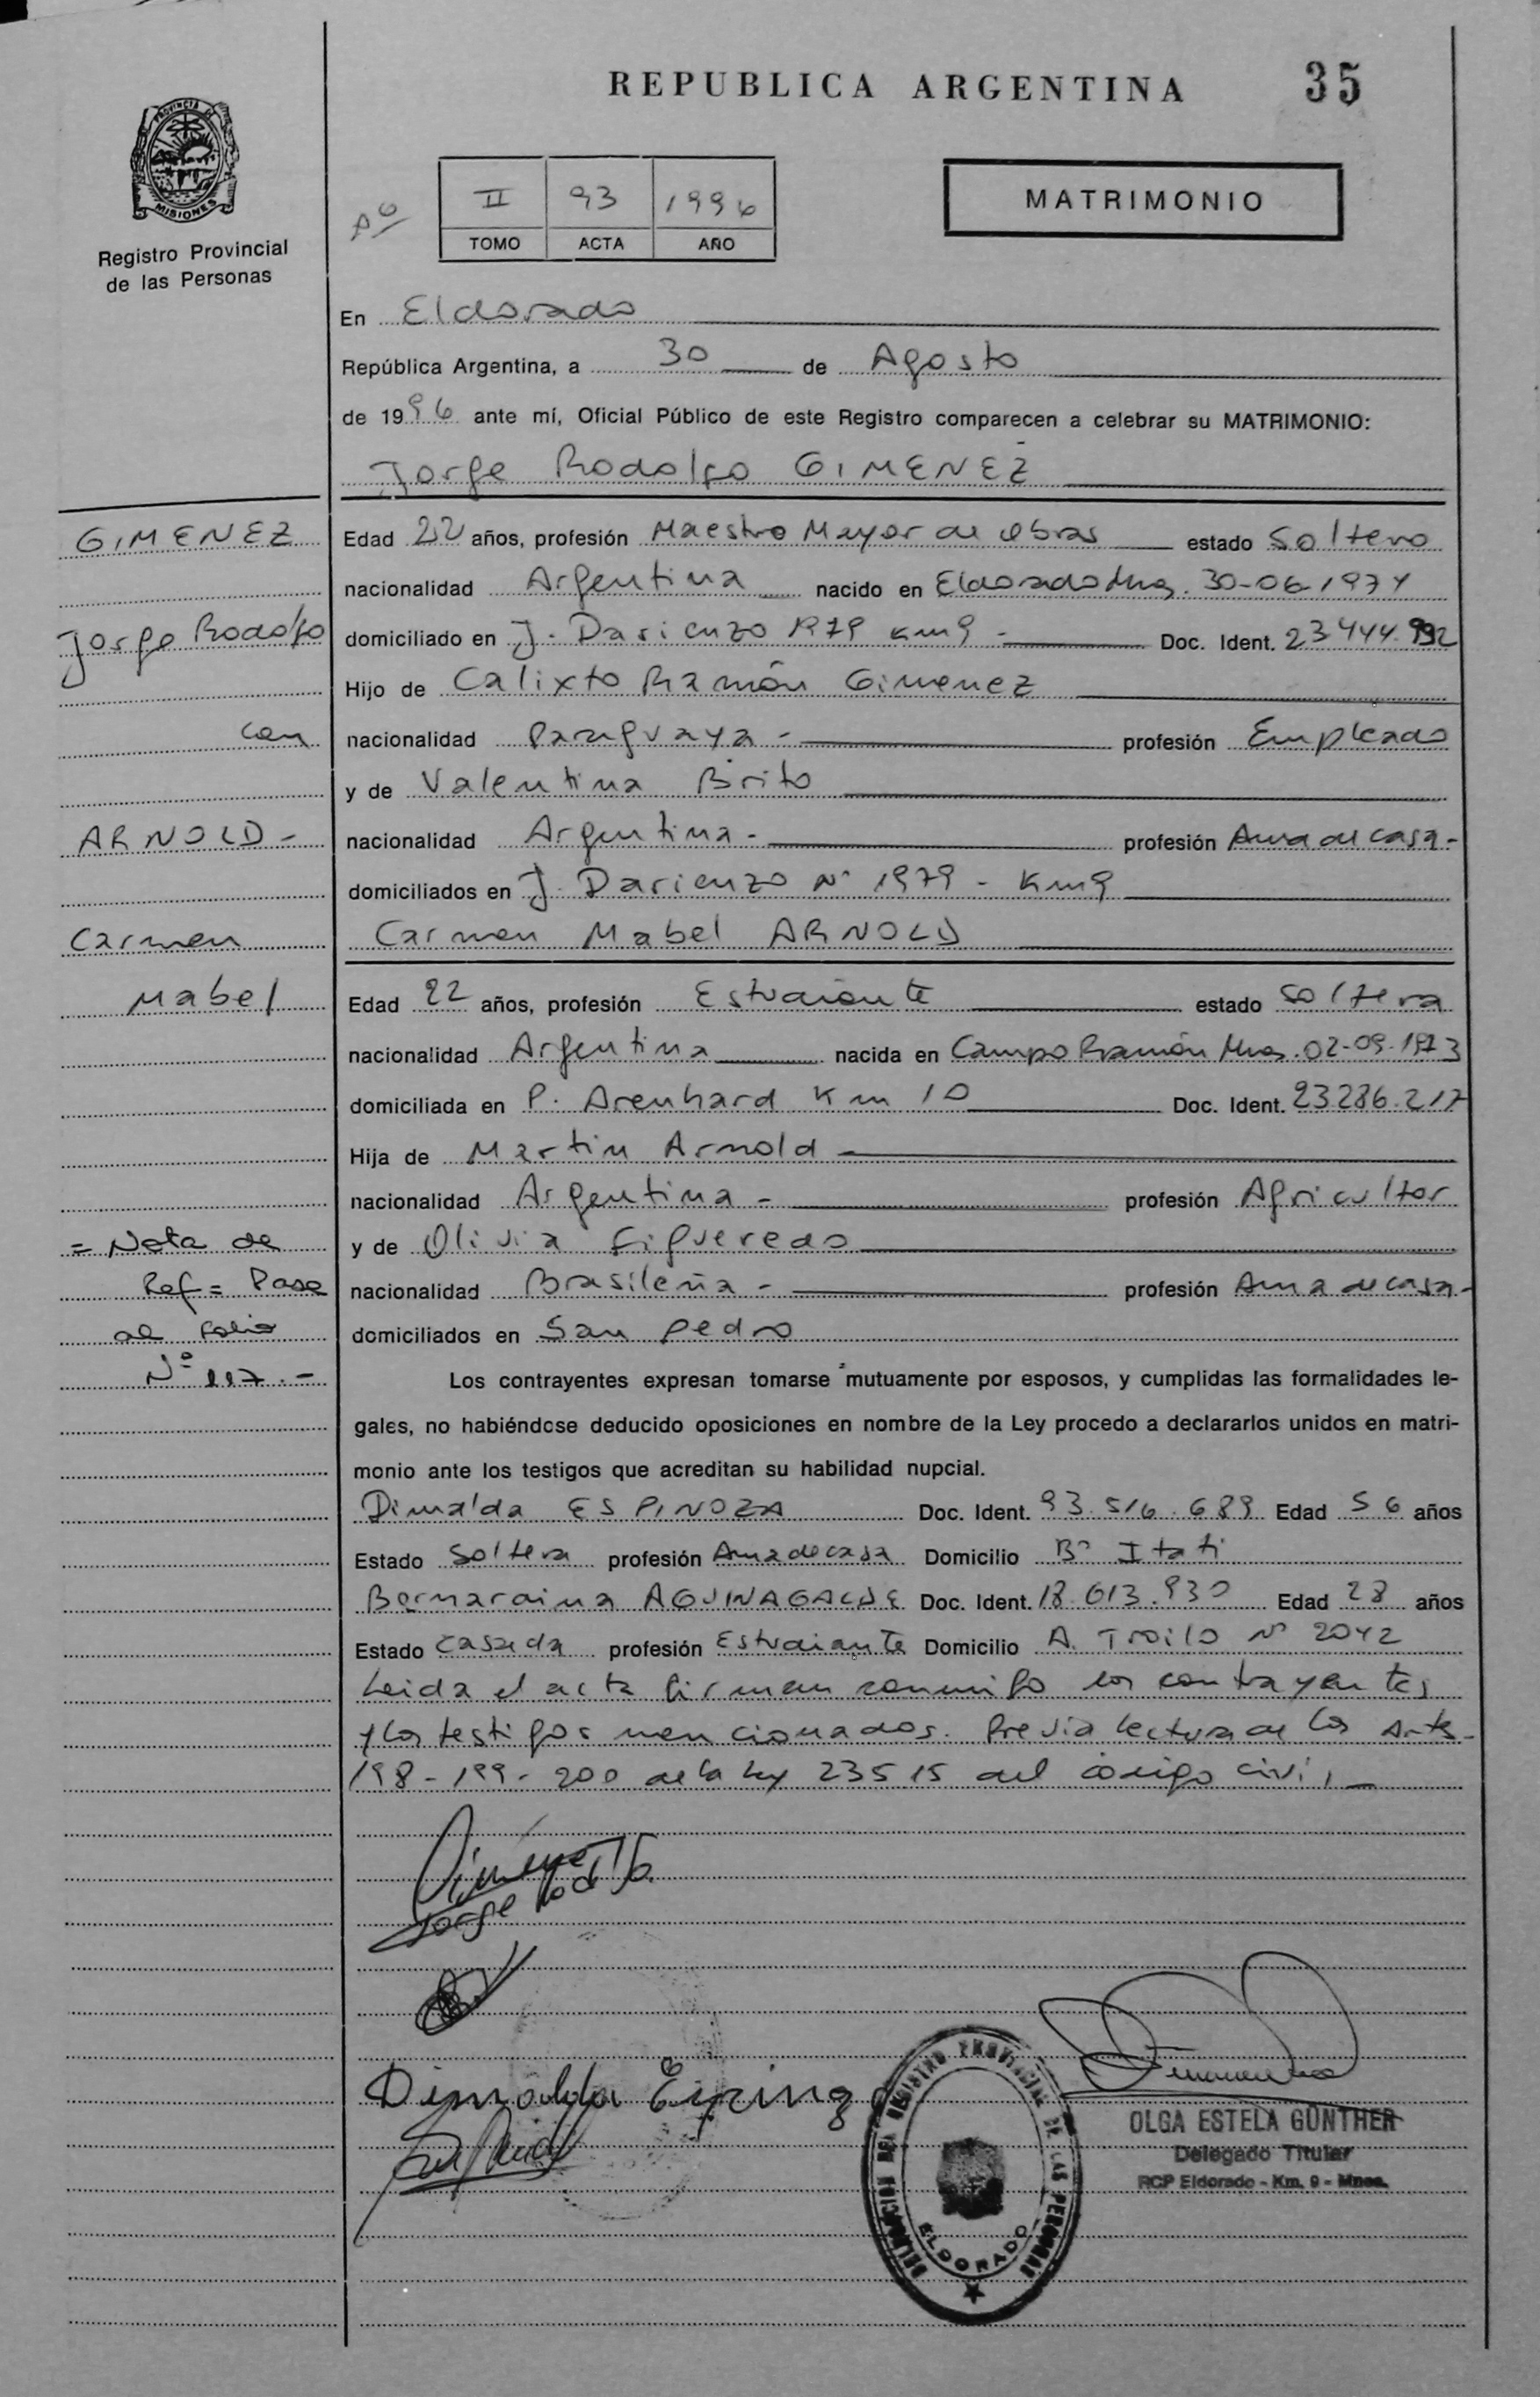 REPUBLICA ARGENTINA
35
PROVINCIA DE
MISIONES
Registro Provincial
de las Personas
II 93 1996
TOMO ACTA AÑO
MATRIMONIO
En Eldorado
República Argentina, a 30 de Agosto
de 1996 ante mí, Oficial Público de este Registro comparecen a celebrar su MATRIMONIO:
Jorge Rodolfo GIMENEZ
GIMENEZ
Jorge Rodolfo
con
ARNOLD -
Carmen
Mabel
= Nota de
Ref = Pase
al folio
Nº 117.-
Edad 22 años, profesión Maestro Mayor de Obras estado Soltero
nacionalidad Argentina nacido en Eldorado Mnes. 30-06-1974
domiciliado en J. Darienzo 1979 Km 9 - Doc. Ident. 23.444.992
Hijo de Calixto Ramón Gimenez
nacionalidad Paraguaya - profesión Empleado
y de Valentina Brito
nacionalidad Argentina - profesión Ama de casa -
domiciliados en J. Darienzo Nº 1979 - Km 9
Carmen Mabel ARNOLD
Edad 22 años, profesión Estudiante estado soltera
nacionalidad Argentina nacida en Campo Ramón Mnes. 02-09-1973
domiciliada en P. Arenhard Km 10 Doc. Ident. 23.286.217
Hija de Martin Arnold -
nacionalidad Argentina - profesión Agricultor
y de Olivia Figueredo
nacionalidad Brasileña - profesión Ama de casa -
domiciliados en San Pedro
Los contrayentes expresan tomarse mutuamente por esposos, y cumplidas las formalidades le-
gales, no habiéndose deducido oposiciones en nombre de la Ley procedo a declararlos unidos en matri-
monio ante los testigos que acreditan su habilidad nupcial.
Dimalda ESPINOZA Doc. Ident. 93.516.689 Edad 56 años
Estado Soltera profesión Ama de casa Domicilio Bº Itati
Bernardina AGUINAGALDE Doc. Ident. 18.613.930 Edad 28 años
Estado Casada profesión Estudiante Domicilio A. Troilo Nº 2042
Leida el acta firman conmigo los contrayentes
y los testigos mencionados. Previa lectura de los Arts -
198 - 199 - 200 de la ley 23515 del código civil
Gimenez
Jorge Rodolfo
Dimalda Espinoza
DELEGACION DEL REGISTRO PROVINCIAL DE LAS PERSONAS
ELDORADO
OLGA ESTELA GUNTHER
Delegado Titular
RCP Eldorado - Km. 9 - Mnes.